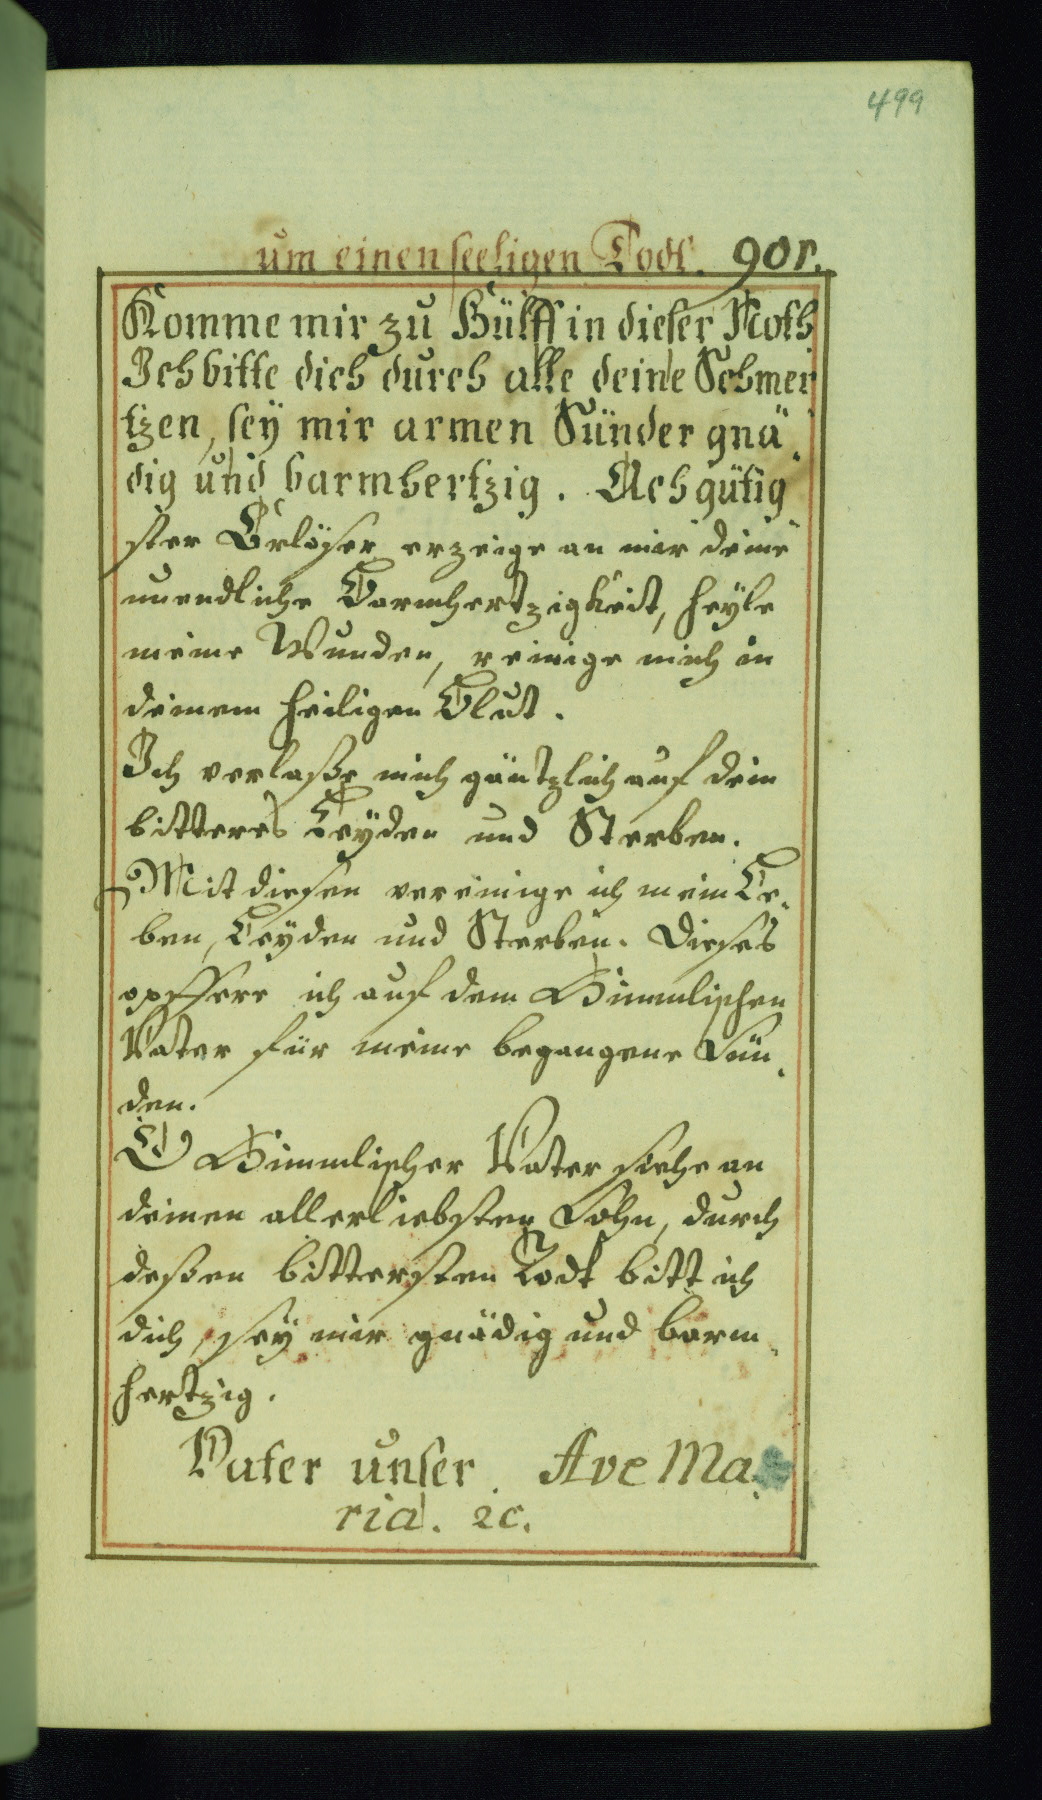 499
um einen seeligen Todt. 901.
Komme mir zu Hülff in dieser Noth
Ich bitte dich durch alle deine Schmer
tzen, seÿ mir armen Sünder gnä„
dig und barmhertzig. Ach gütig
ster Erlöser erzeige an mir deine
unendliche Barmhertzigkeit, heÿle
meine Wunden, reinige mich in
deinem heiligen Blut.
Ich verlaße mich gäntzlich auf dein
bitteres Leÿden und Sterben.
Mit diesen vereinige ich mein Le„
ben, Leÿden und Sterben. Dieses
opffere ich auf dem Himmlischen
Vater für meine begangene Sün„
den.
O Himmlischer Vater siehe an
deinen allerliebsten Sohn, durch
deßen bittersten Todt bitt ich
dich, seÿ mir gnädig und barm„
hertzig.
Vater unser. Ave Ma„
ria. ꝛc.